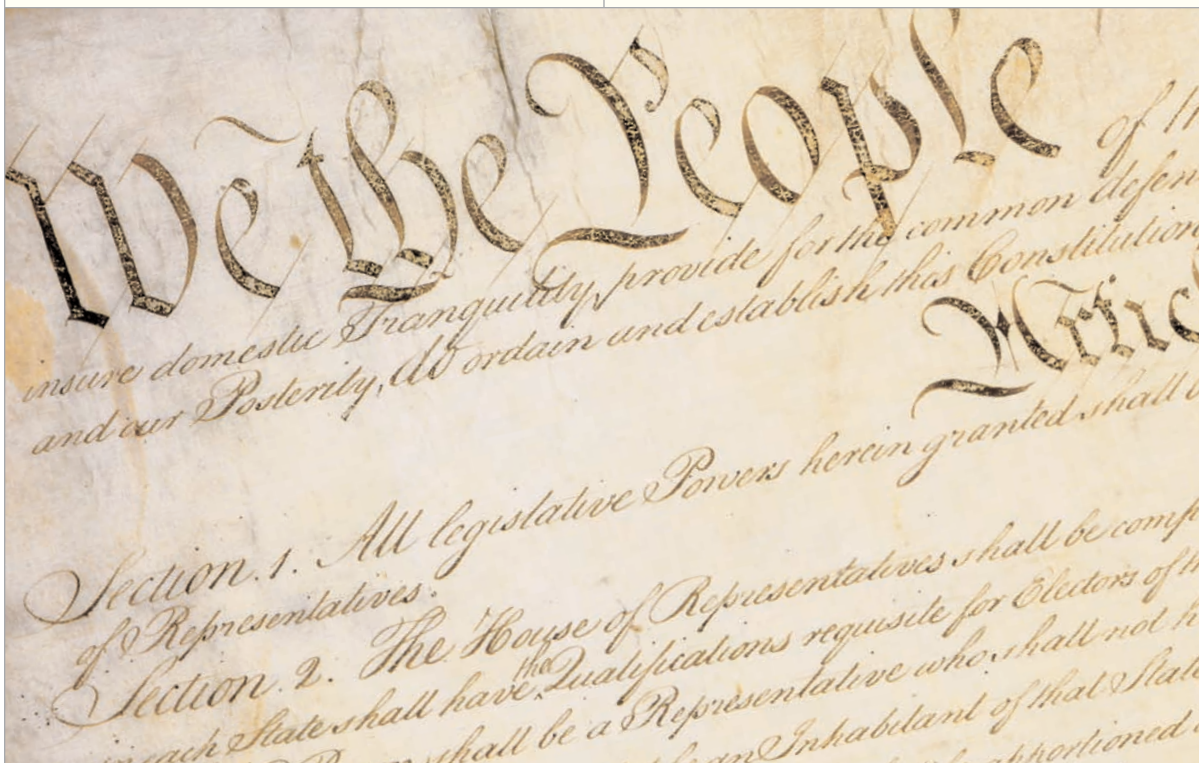 We the People of th
insure domestic Tranquility, provide for the common defen
and our Posterity, do ordain and establish this Constitution
Artic
Section. 1. All legislative Powers herein granted shall b
of Representatives.
Section. 2. The House of Representatives shall be comp
in each State shall have the Qualifications requisite for Electors of th
shall be a Representative who shall not h
an Inhabitant of that State
apportioned